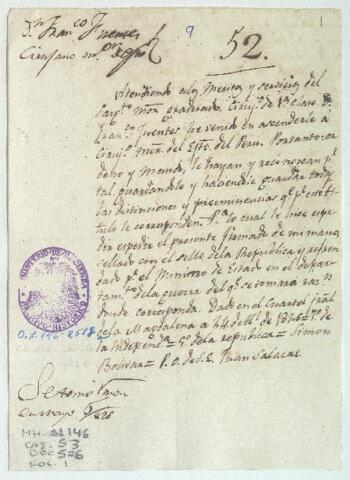 Dn. Franco. Fuentes
Cirujano
9
52.
1
Atendiendo a los Meritos y servicios del
Cirujo. de 1a. clase D.
Franco. Fuentes he venido en ascenderle a
Cirujo. Mor. del Esto. del Peru. Por tanto: or
deno y Mando, le hayan y reconozcan pr.
tal, guardandole y haciendole guardar todas
las distinciones y preeminencias qe. pr. este ti
tulo le corresponden. Pa. lo cual le hice espe
dir el presente firmado de mi mano,
sellado con el sello de la Republica y refren
dado pr. el Ministro de Estado en el depar
tamto. de la guerra del qe. se tomara razn.
donde corresponda. Dado en el Cuartel Jral.
de la Magdalena a 24 de 1826 = 7o. de
la Independa. = 5o. de la republica = Simon
Bolivar = P. O. de S. E. Juan Salazar
MINISTERIO DE HACIENDA
O.L. 146-2518
Se tomó razon
1826
MH-OL 146
CAJ. 53
DOC 526
FOL. 1